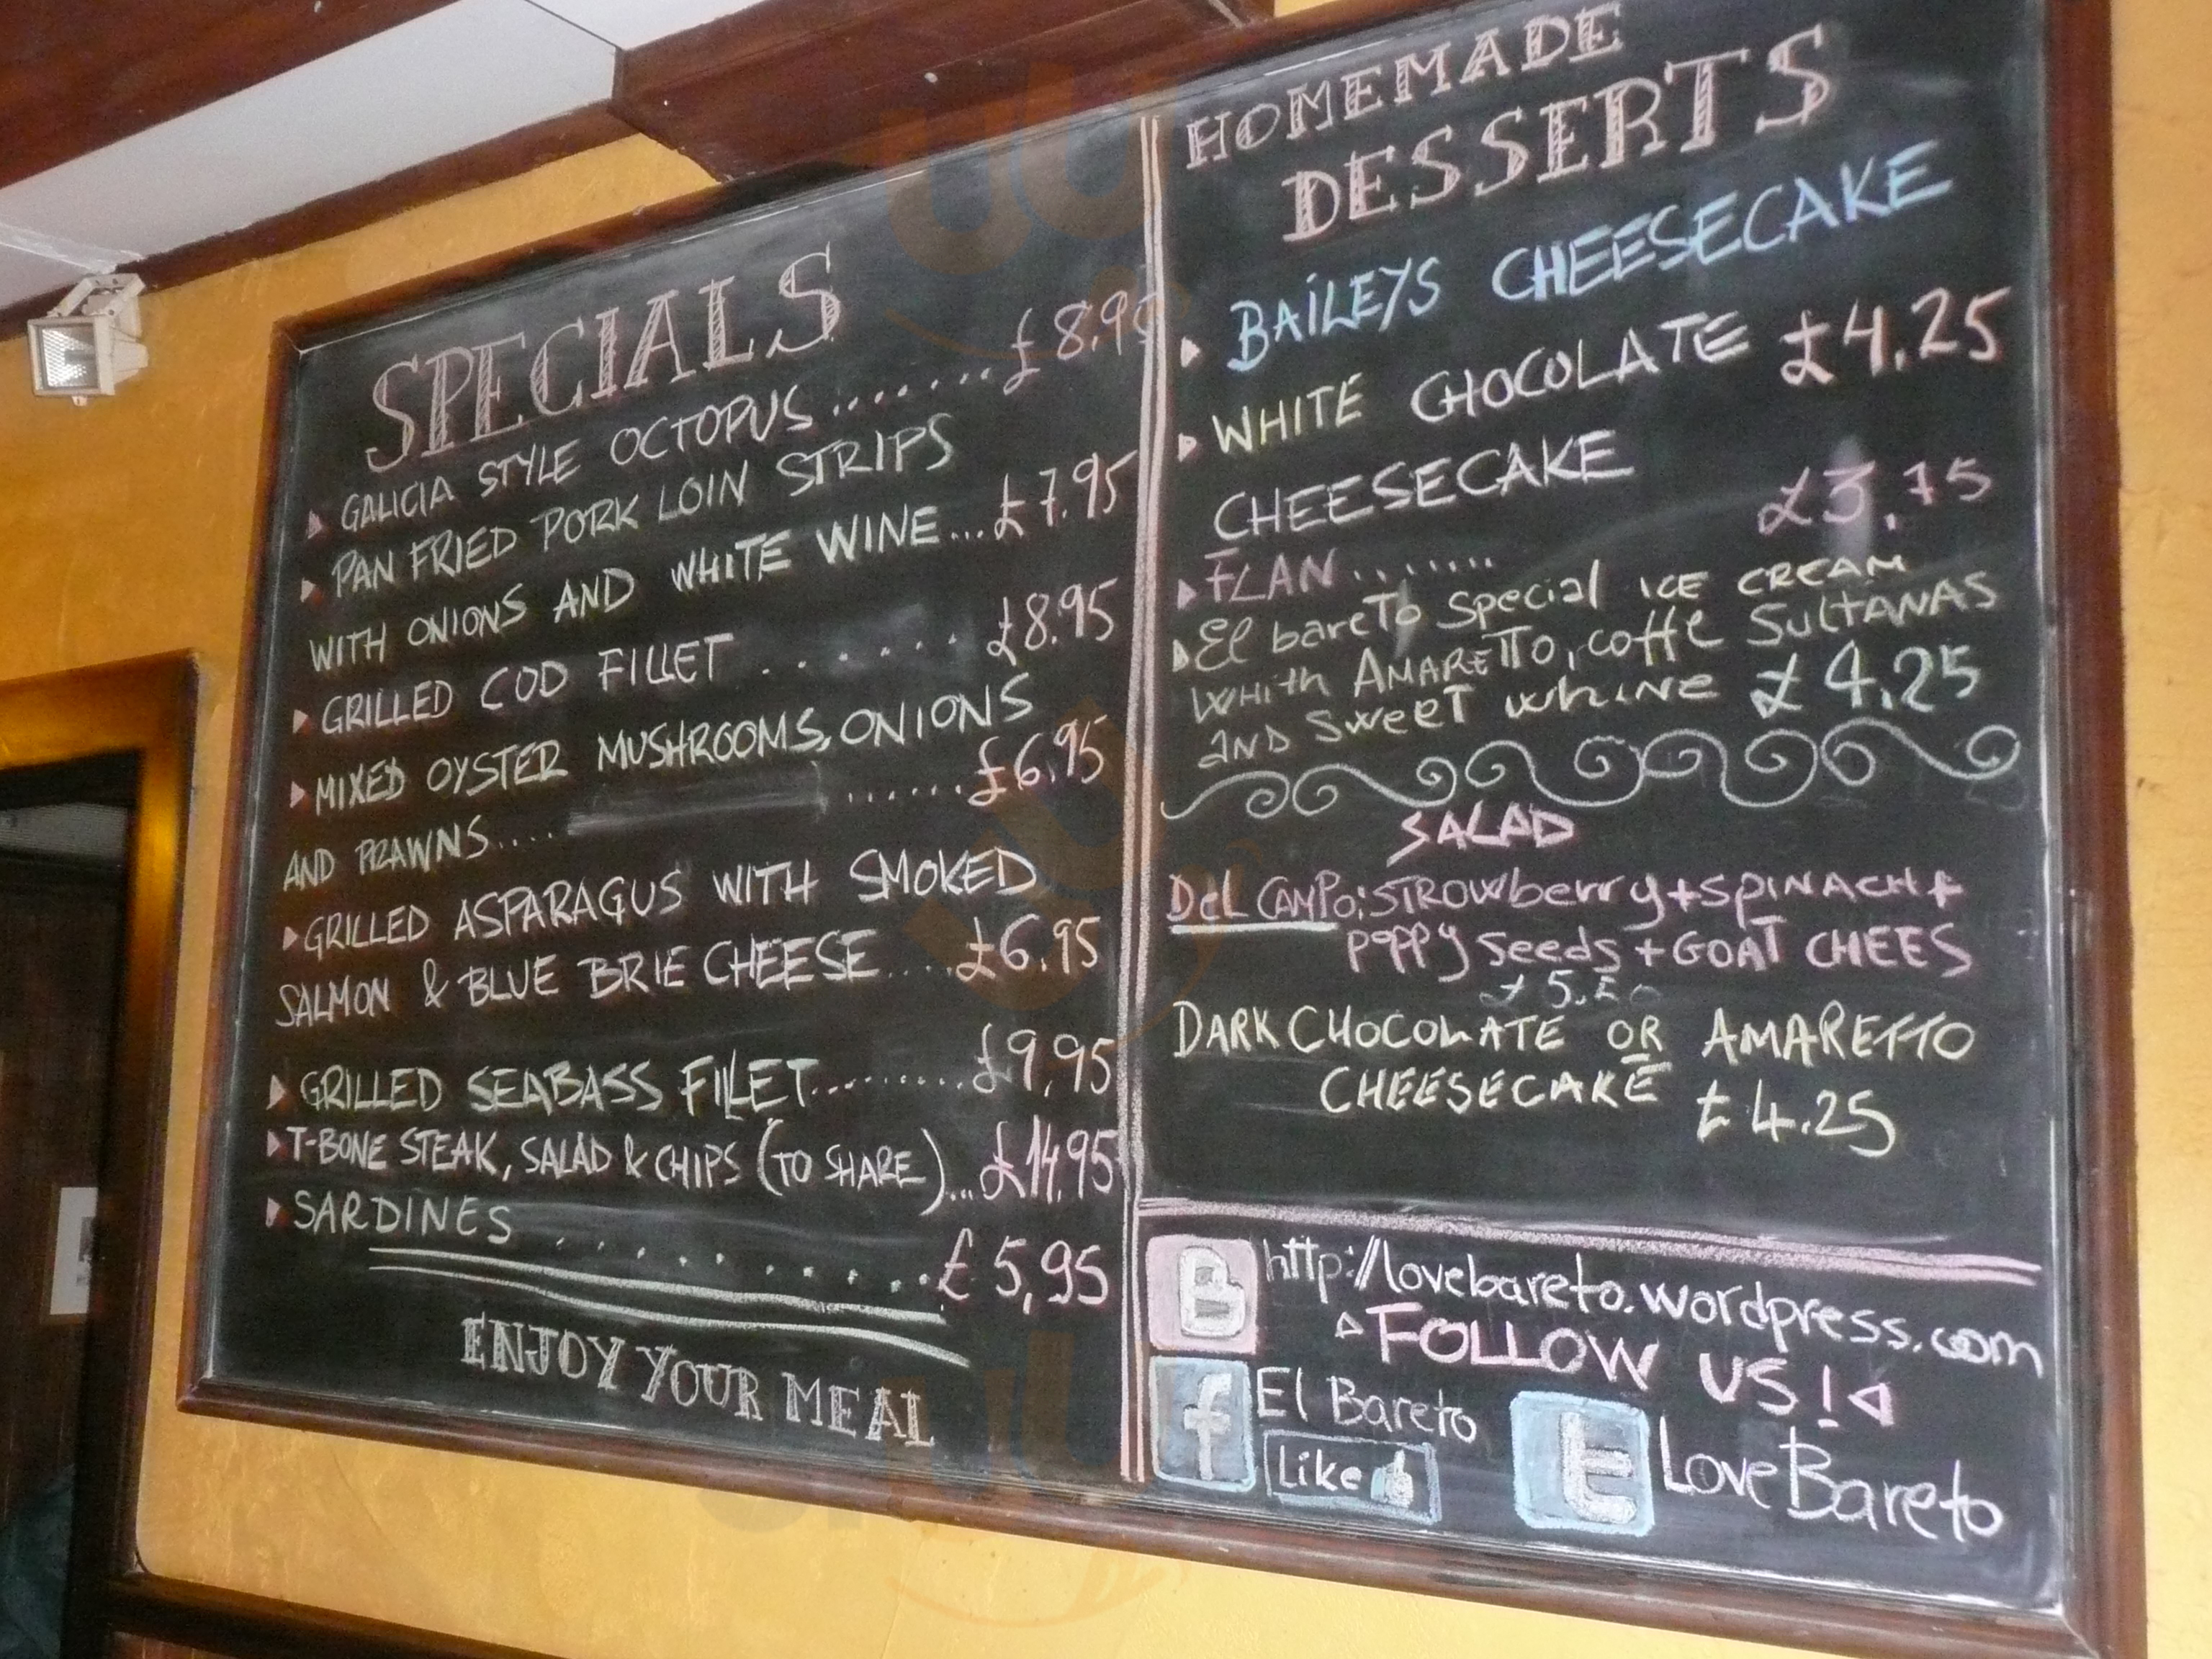 SPECIALS
▸ GALICIA STYLE OCTOPUS ....... £8.95
▸ PAN FRIED PORK LOIN STRIPS
WITH ONIONS AND WHITE WINE... £7.95
▸ GRILLED COD FILLET ....... £8.95
▸ MIXED OYSTER MUSHROOMS, ONIONS
AND PRAWNS.... ...... £6.95
▸ GRILLED ASPARAGUS WITH SMOKED
SALMON & BLUE BRIE CHEESE .... £6.95
▸ GRILLED SEABASS FILLET.......... £9,95
▸ T-BONE STEAK, SALAD & CHIPS (TO SHARE)... £14,95
▸ SARDINES ......... £5,95
ENJOY YOUR MEAL
HOMEMADE
DESSERTS
▸ BAILEYS CHEESECAKE
▸ WHITE CHOCOLATE £4.25
CHEESECAKE
▸ FLAN ........ £3.75
▸ El bareto Special ICE CREAM
Whith AMARETTO, coffe SultANAS
and sweet whine £4.25
SALAD
Del CAMPO: STROWberry + SPINACH +
Poppy Seeds + GOAT CHEES
DARK CHOCOLATE OR AMARETTO
CHEESECAKE £4.25
B http://lovebareto.wordpress.com
FOLLOW US!
f El Bareto
Like
t LoveBareto